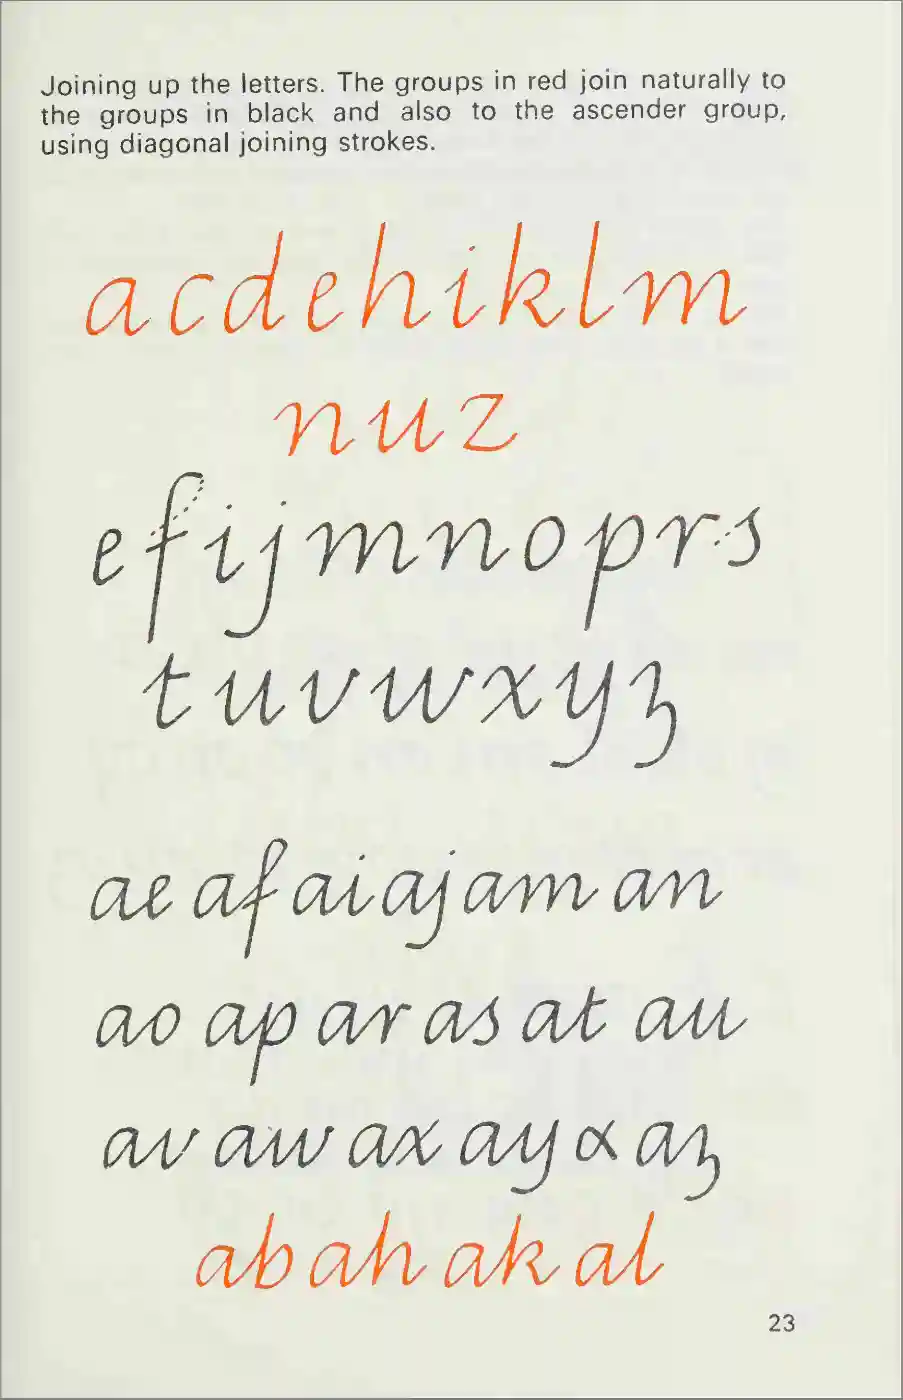 Joining up the letters. The groups in red join naturally to
the groups in black and also to the ascender group,
using diagonal joining strokes.
a c d e h i k l m
n u z
e f i j m n o p r s
t u v w x y ʒ
ae af ai aj am an
ao ap ar as at au
av aw ax ay α aʒ
ab ah ak al
23